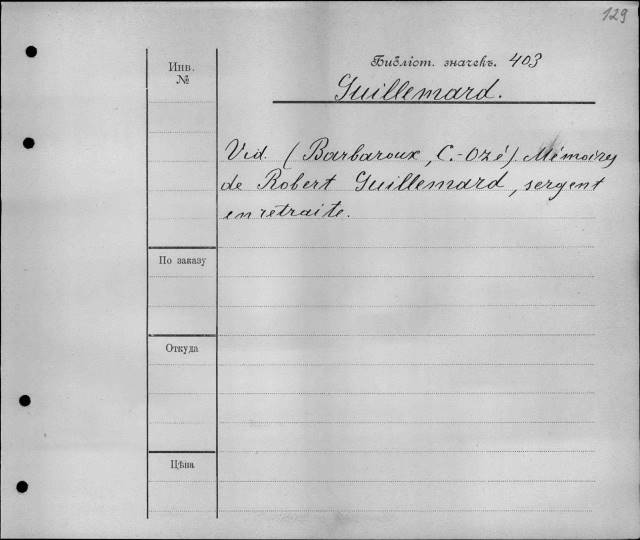 129
Инв. №
Библіот. значекъ. 403
Guillemard.
Vid. (Barbaroux, C.-Ozé). Mémoires
de Robert Guillemard, sergent
en retraite.
По заказу
Откуда
Цѣна